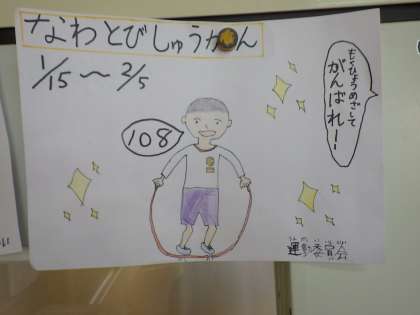 なわとびしゅうかん
1/15〜2/5
108
もくひょうめざして
がんばれー！
運動委員会